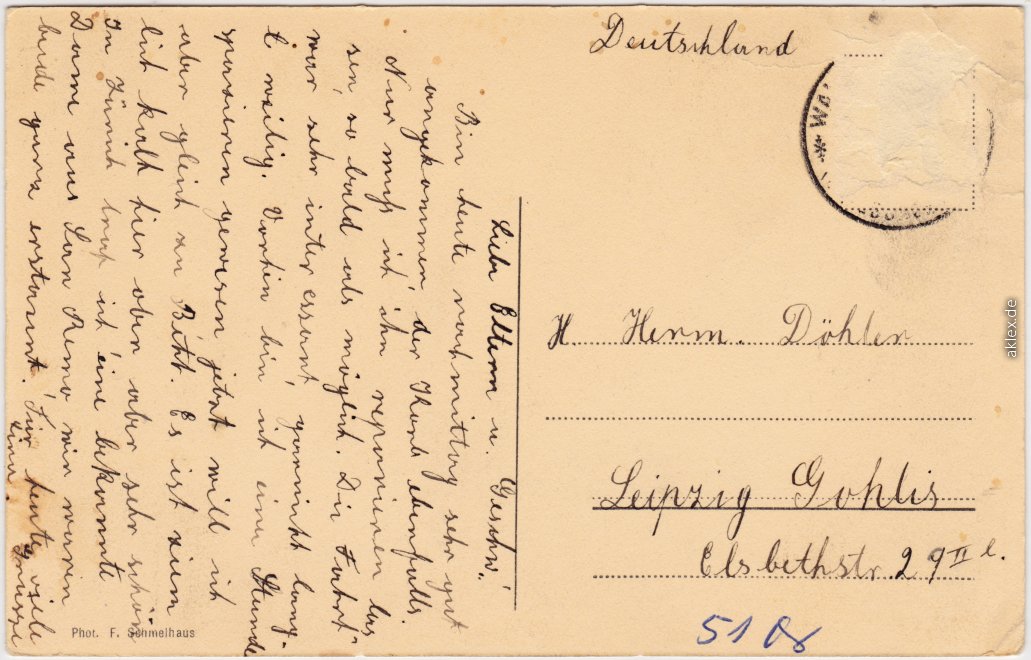 Liebe Eltern u. Geschw.!
Bin heute nachmittag sehr gut
angekommen, der Korb ebenfalls.
Nur muß ich ihn reparieren las-
sen, so bald als möglich. Die Fahrt
war sehr interessant garnicht lang-
weilig. Vorhin bin ich eine Stunde
spazieren gewesen jetzt will ich
aber gleich zu Bett. Es ist ziem
lich kalt hier oben aber sehr schön
In Zürich traf ich eine bekannte
Dame aus San Remo wir waren
beide ganz erstaunt. Für heute viele
Grüsse
Phot. F. Schmelhaus
Deutschland
H. Herrn. Döhler
Leipzig Gohlis
Elsbethstr. 29 II l.
51
aklex.de